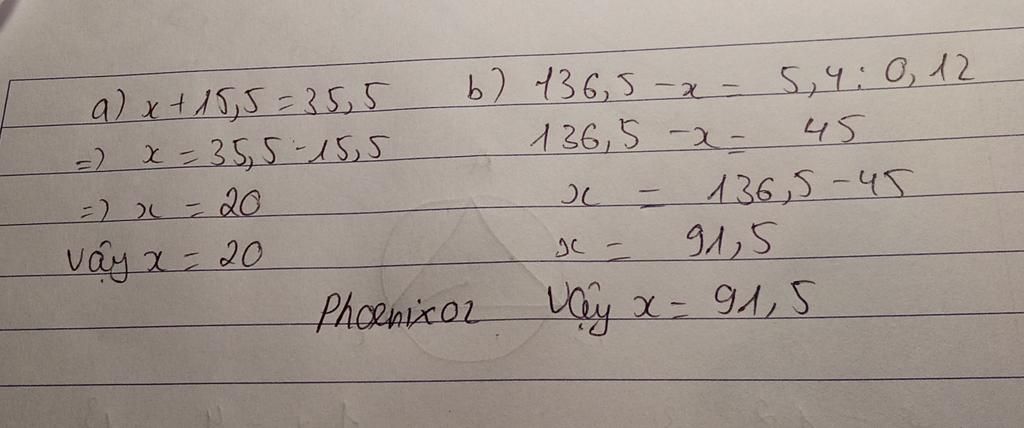 a) x + 15,5 = 35,5
=> x = 35,5 - 15,5
=> x = 20
Vậy x = 20
b) 136,5 - x = 5,4 : 0,12
136,5 - x = 45
x = 136,5 - 45
x = 91,5
Vậy x = 91,5
Phoenixoz